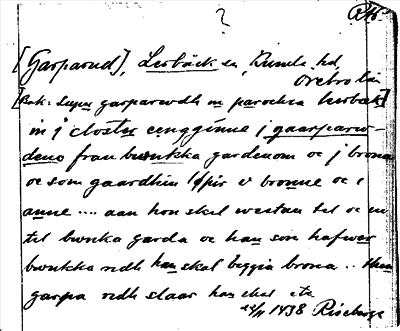 ?
RA
[Garparud], Lerbäck sn, Kumla hd,
Örebro län
[Bak: Super garparwdh in parochia lerbak]
in j closter engginne j gaarparw-
deno fran bwnkka gardenom oc j brona
oc som gaardhin löpir v bronne oc i
anne .... aan hon skal westan til oc in
til bwnka garda oc han son hafwer
bwnkka redh han skal byggia brona ..
garpa redh slaar han skal etc
1438 Riseberga